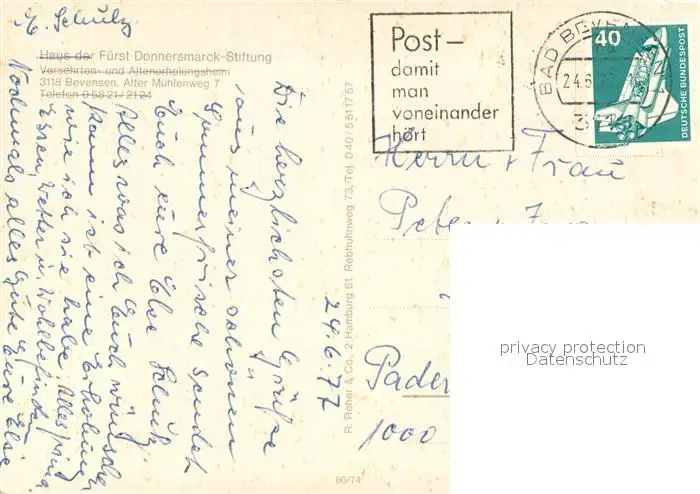 E. Schulz
Haus der Fürst Donnersmarck-Stiftung
Versehrten- und Altenerholungsheim
3118 Bevensen, Alter Mühlenweg 7
Telefon 0 58 21 / 21 24
Post –
damit
man
voneinander
hört
BAD BEVENSEN
24.6.77
311
40
DEUTSCHE BUNDESPOST
24.6.77
Die herzlichsten Grüße
aus meiner schönen
Sommerfrische sendet
Euch eure Else Schulz
Alles was ich Euch wünschen
kann ist eine Erholung
wie ich sie habe. Alles prima
Essen, Wetter u. Wohlbefinden
Nochmals alles Gute Eure Else
R. Reher & Co., 2 Hamburg 61, Rebhuhnweg 73, Tel. 040/5511757
80/74
Herrn + Frau
Peter
Pader
1000
privacy protection
Datenschutz